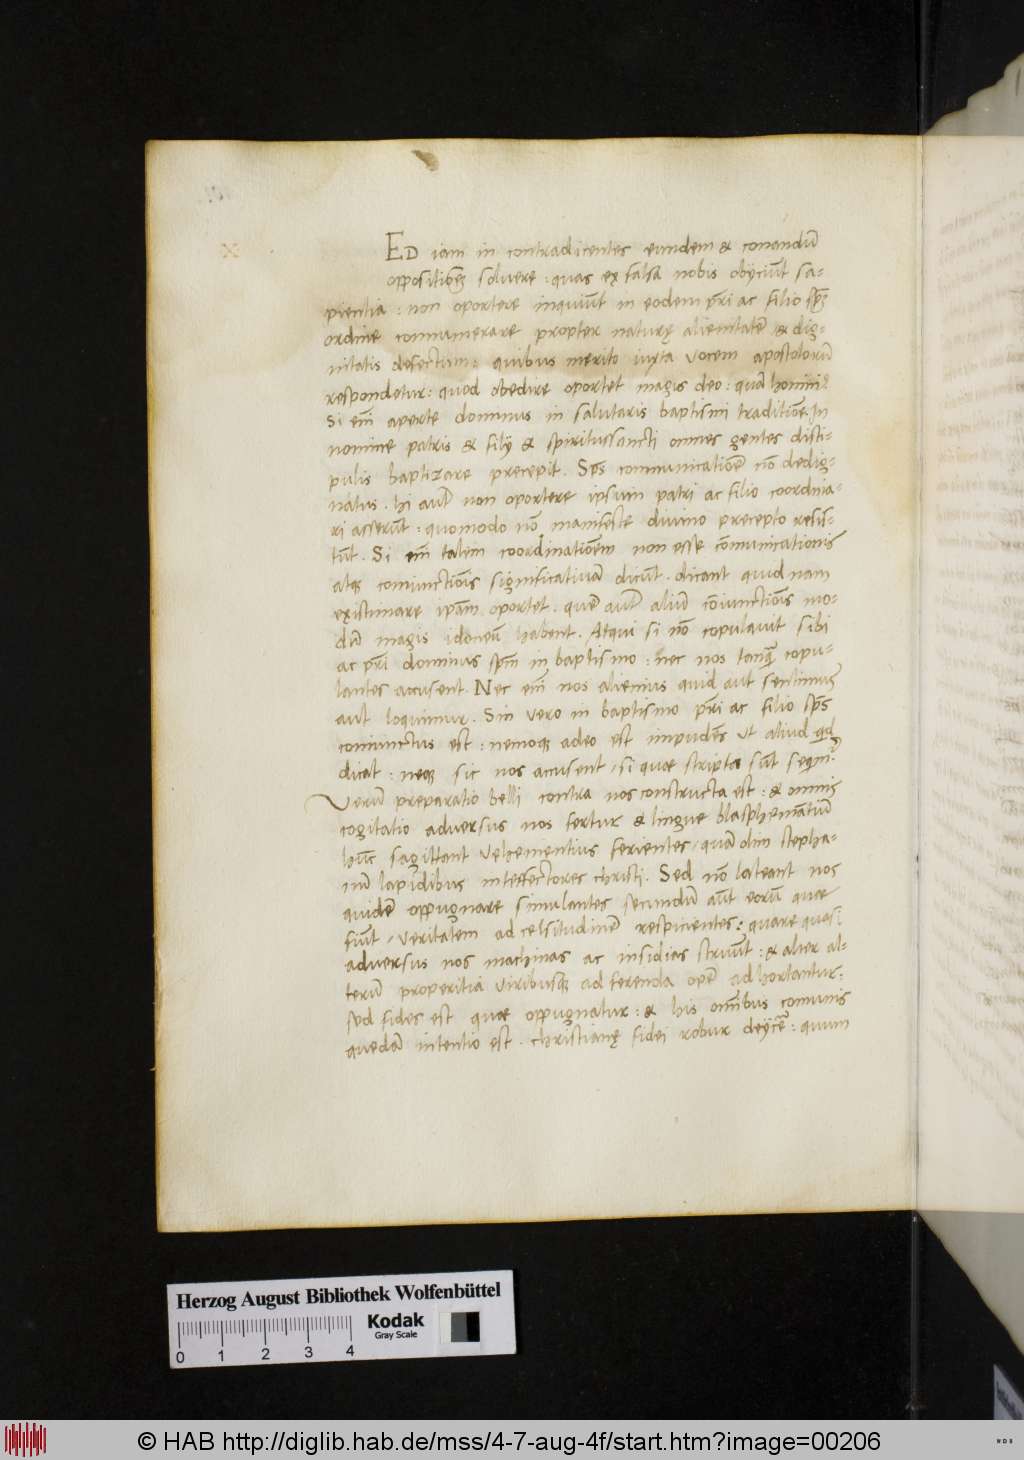 X
ED iam in contradicentes eundem & conandū
oppositiōēs solvere : quas ex falsa nobis obijciūt sa-
pientia : non oportere inquiūt in eodem pr̄i ac filio sp̄s
ordine connumerare propter naturę alienitatē & dig-
nitatis defectum : quibus merito iuxta vocem apostolorū
respondetur : quod obedire oportet magis deo : quā hominib
Si em̄ aperte dominus in salutaris baptismi traditiōe. In
nomine patris & filij & spiritussancti omnes gentes disci-
pulis baptizare precepit. Sp̄s communicatiōē nō dedig-
natus. hi aut̄ non oportere ipsum patri ac filio coordina-
ri asserūt : quomodo nō manifeste divino precepto resis-
tūt. Si em̄ talem coordinatiōem non esse cōmunicationis
atq̨ coniunctiōis significativā dicūt. dicant quid nam
existimare ip̄am oportet. quē aut̄ aliū cōiunctiōis mo-
dū magis idoneū habent. Atqui si nō copulavit sibi
ac pr̄i dominus sp̄m in baptismo : nec nos tanq̄ copu-
lantes accusent. Nec em̄ nos alienius quid aut sentimus
aut loquimur. Sin vero in baptismo pr̄i ac filio sp̄s
coniunctus est : nemoq̨ adeo est impudēs ut aliud qd̄
dicat : neq̨ sic nos accusent / si quae scripta sūt sequim̄
Verū preparatio belli contra nos constructa est : & omnis
cogitatio adversus nos fertur & lingue blasphemātiū
hūc sagittant vehementius ferientes / quā olim stepha-
nū lapidibus interfectores christi. Sed nō lateant nos
quidē oppugnare simulantes secundū aūt eorū quae
fiūt / veritatem ad celsitudinē respicientes : quare ques.
adversus nos machinas ac insidias struūt : & alter al-
terū pro peritia viribusq̨ ad ferenda opē adhortantur :
sed fides est quae oppugnatur : & his oīnibus comunis
quedā intentio est. christianę fidei robur deijcē : quum
Herzog August Bibliothek Wolfenbüttel
Kodak
Gray Scale
0 1 2 3 4
© HAB http://diglib.hab.de/mss/4-7-aug-4f/start.htm?image=00206